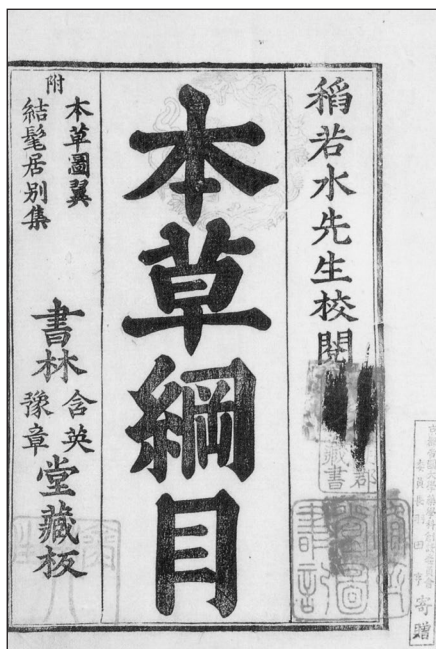 稻若水先生校閱
本草綱目
附
本草圖翼
結髦居別集
書林
含英
豫章
堂藏板
藏書
寄贈